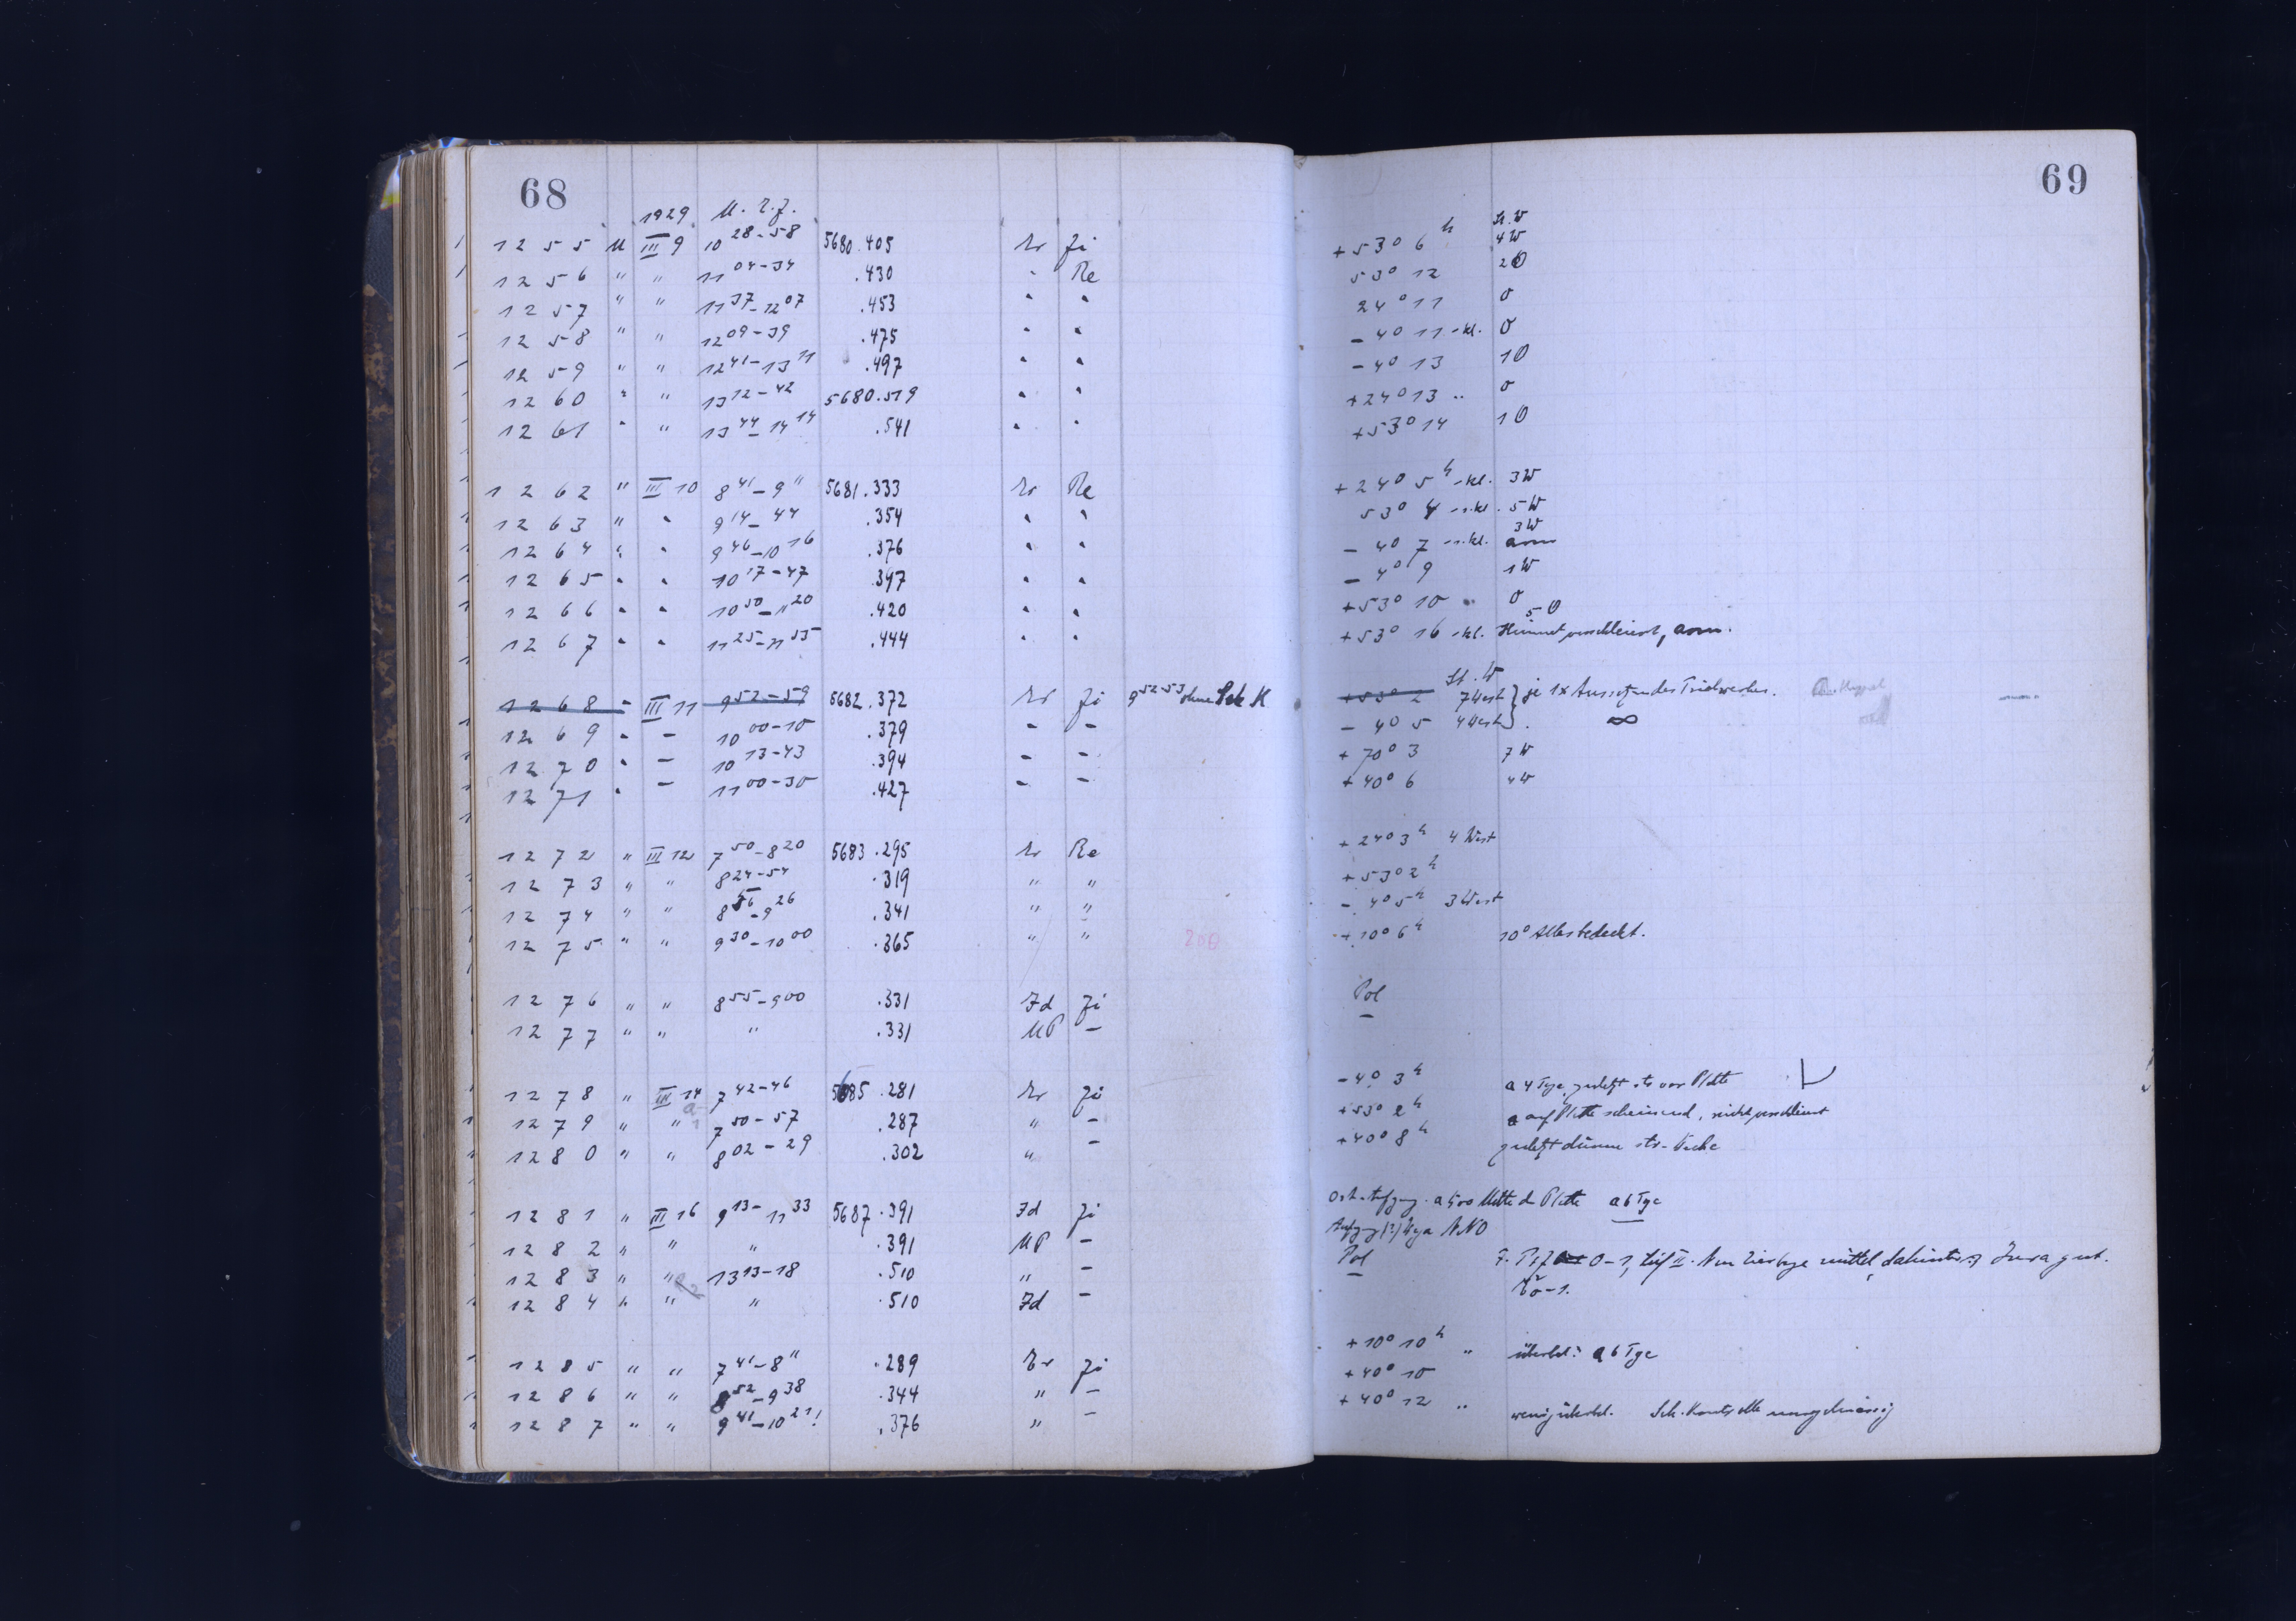 68
1929 M. Z. Z.
1255 M III 9 10 28-58 5680.405 Er Zi
1256 " " 11 04-34 .430 " Re
1257 " " 11 37-12 07 .453 " "
1258 " " 12 09-39 .475 " "
1259 " " 12 41-13 11 .497 " "
1260 " " 13 12-42 5680.519 " "
1261 " " 13 44-14 14 .541 " "
1262 " III 10 8 41-9 11 5681.333 Er Re
1263 " " 9 14-44 .354 " "
1264 " " 9 46-10 16 .376 " "
1265 " " 10 17-47 .397 " "
1266 " " 10 50-11 20 .420 " "
1267 " " 11 25-11 55 .444 " "
1268 - III 11 9 52-59 5682.372 Er Zi 9 52-53 ohne Sch K
1269 " - 10 00-10 .379 - -
1270 " - 10 13-43 .394 - -
1271 " - 11 00-30 .427 - -
1272 " III 12 7 50-8 20 5683.295 Er Re
1273 " " 8 24-54 .319 " "
1274 " " 8 56-9 26 .341 " "
1275 " " 9 30-10 00 .365 " "
1276 " " 8 55-9 00 .331 Zd Zi
1277 " " " .331 UP -
1278 " III 14 7 42-46 5685.281 Er Zi
1279 " " 7 50-57 .287 " -
1280 " " 8 02-29 .302 " -
1281 " III 16 9 13-11 33 5687.391 Zd Zi
1282 " " " .391 UP -
1283 " " 13 13-18 .510 " -
1284 " " " .510 Zd -
1285 " " 7 41-8 11 .289 Er Zi
1286 " " 8 52-9 38 .344 " -
1287 " " 9 41-10 21! .376 " -
69
St. W
+53° 6 h 4W
53° 12 2O
24° 11 O
-4° 11 -kl. O
-4° 13 1O
+24° 13 .. O
+53° 14 1O
+24° 5 h -kl. 3W
53° 4 -kl. 5W
3W
-4° 7 -kl.
-4° 9 1W
+53° 10 O
5 O
+53° 16 -kl. Himmel verschleiert,
St. W
+53° 2 7 West } je 1x Aussetzen des Triebwerkes.
-4° 5 4 West } ∞
+70° 3 7W
+40° 6 4W
+24° 3 h 4 West
+53° 2 h
-4° 5 h 3 West
+10° 6 h 10° Alles bedeckt.
Pol
-
-4° 3 h a 4 Tge zuletzt str vor Platte
+53° 2 h a auf Platte scheinend, nicht verschleiert
+40° 8 h zuletzt dünne str-Decke
Ost-Aufgang. a 500 Mitte d Platte a 6 Tge
Aufgang (?) Wega NNO
Pol
-
+10° 10 h .. a 6 Tge
+40° 10
+40° 12 .. wenig Sch. Kontrolle unregelmässig